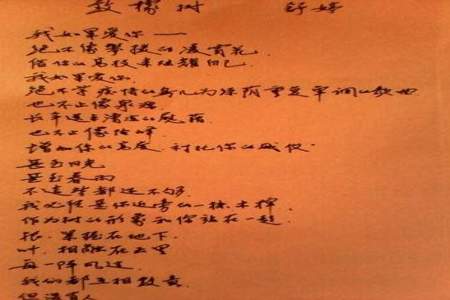 致橡树 舒婷
我如果爱你——
绝不像攀援的凌霄花
借你的高枝来炫耀自己
我如果爱你
绝不学痴情的鸟儿为绿荫重复单调的歌曲
也不止像泉源
长年送来清凉的慰藉
也不止像险峰
增加你的高度,衬托你的威仪
甚至日光
甚至春雨
不这些都还不够
我必须是你近旁的一株木棉
作为树的形象和你站在一起
根,紧握在地下
叶,相融在云里
每一阵风过
我们都互相致意
但没有人